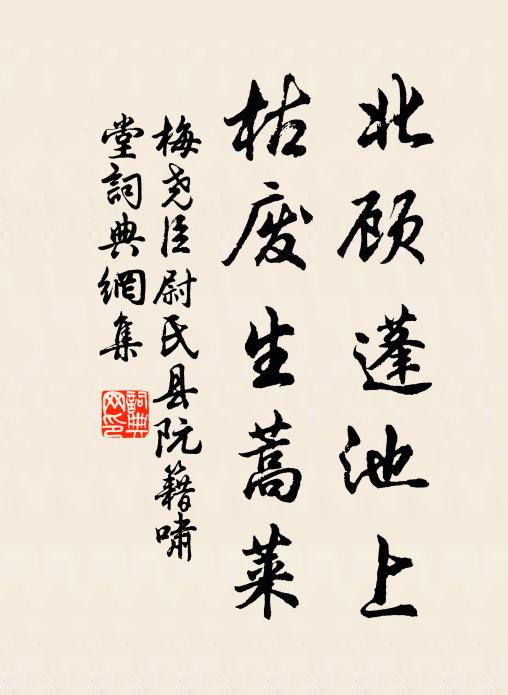 北顾蓬池上
枯废生蒿莱
梅尧臣尉氏县阮籍啸
堂詞典網集
詞典
网印